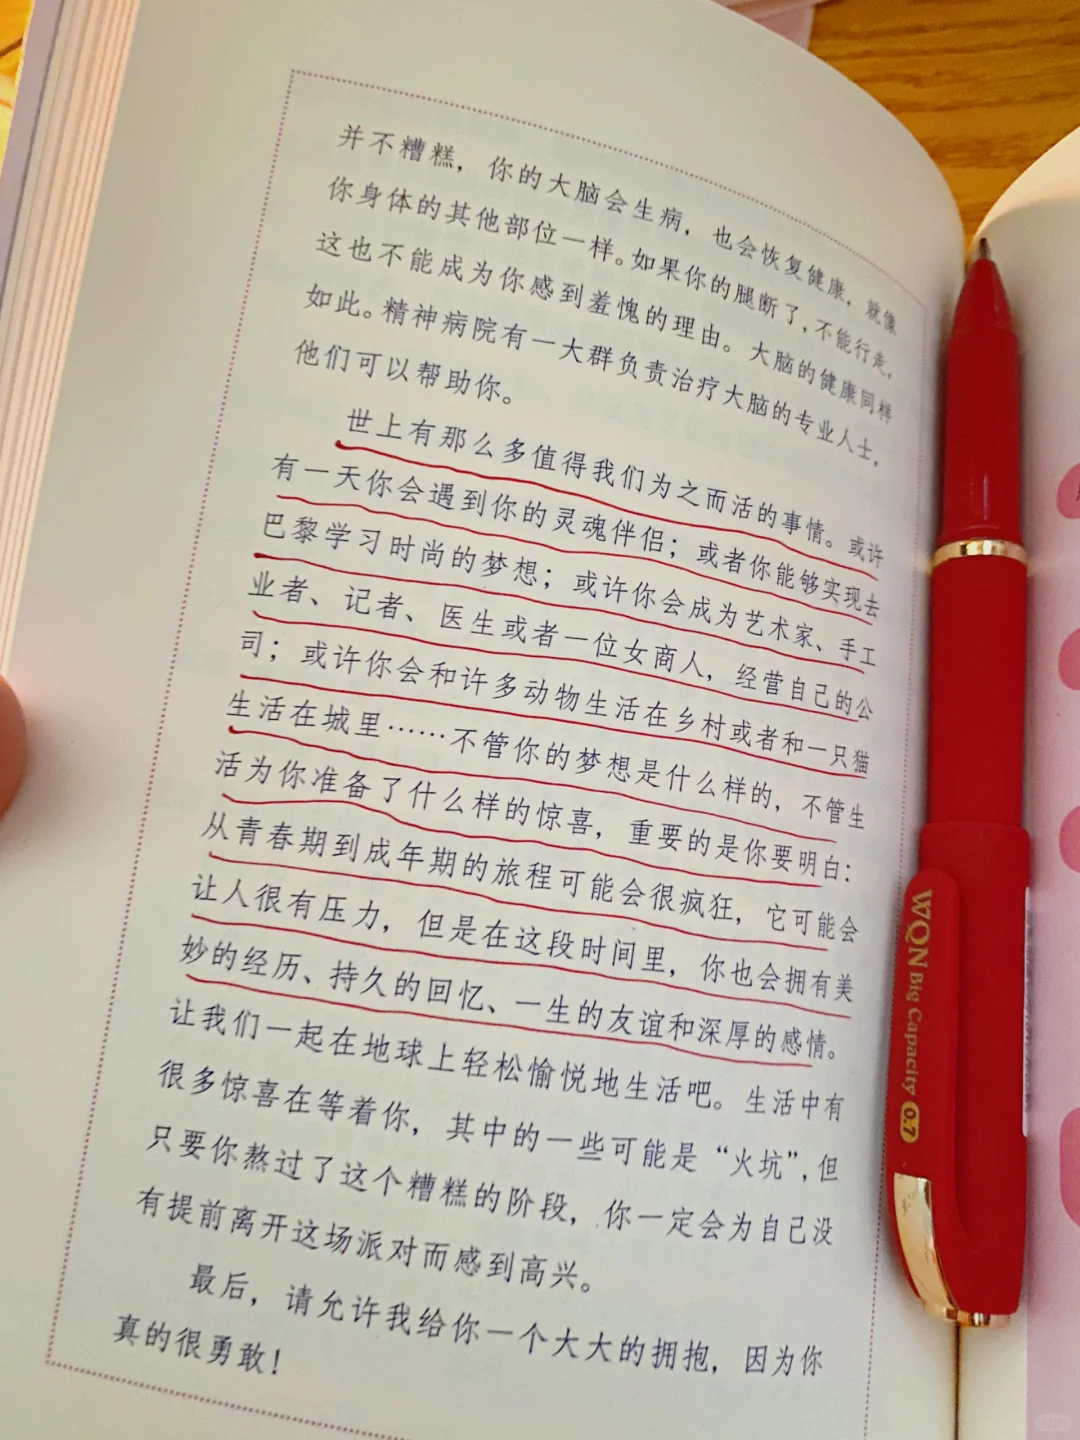 并不糟糕，你的大脑会生病，也会恢复健康，就像
你身体的其他部位一样。如果你的腿断了，不能行走，
这也不能成为你感到羞愧的理由。大脑的健康同样
如此。精神病院有一大群负责治疗大脑的专业人士，
他们可以帮助你。
世上有那么多值得我们为之而活的事情。或许
有一天你会遇到你的灵魂伴侣；或者你能够实现去
巴黎学习时尚的梦想；或许你会成为艺术家、手工
业者、记者、医生或者一位女商人，经营自己的公
司；或许你会和许多动物生活在乡村或者和一只猫
生活在城里……不管你的梦想是什么样的，不管生
活为你准备了什么样的惊喜，重要的是你要明白：
从青春期到成年期的旅程可能会很疯狂，它可能会
让人很有压力，但是在这段时间里，你也会拥有美
妙的经历、持久的回忆、一生的友谊和深厚的感情。
让我们一起在地球上轻松愉悦地生活吧。生活中有
很多惊喜在等着你，其中的一些可能是“火坑”，但
只要你熬过了这个糟糕的阶段，你一定会为自己没
有提前离开这场派对而感到高兴。
最后，请允许我给你一个大大的拥抱，因为你
真的很勇敢！
WQN Big Capacity 0.7